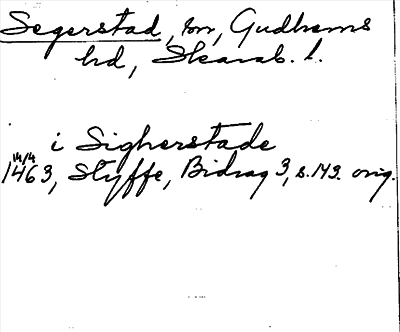 Segerstad, sn, Gudhems
hd, Skarab. l.
i Sigherstade
14/4
1463, Styffe, Bidrag 3, s. 143. orig.